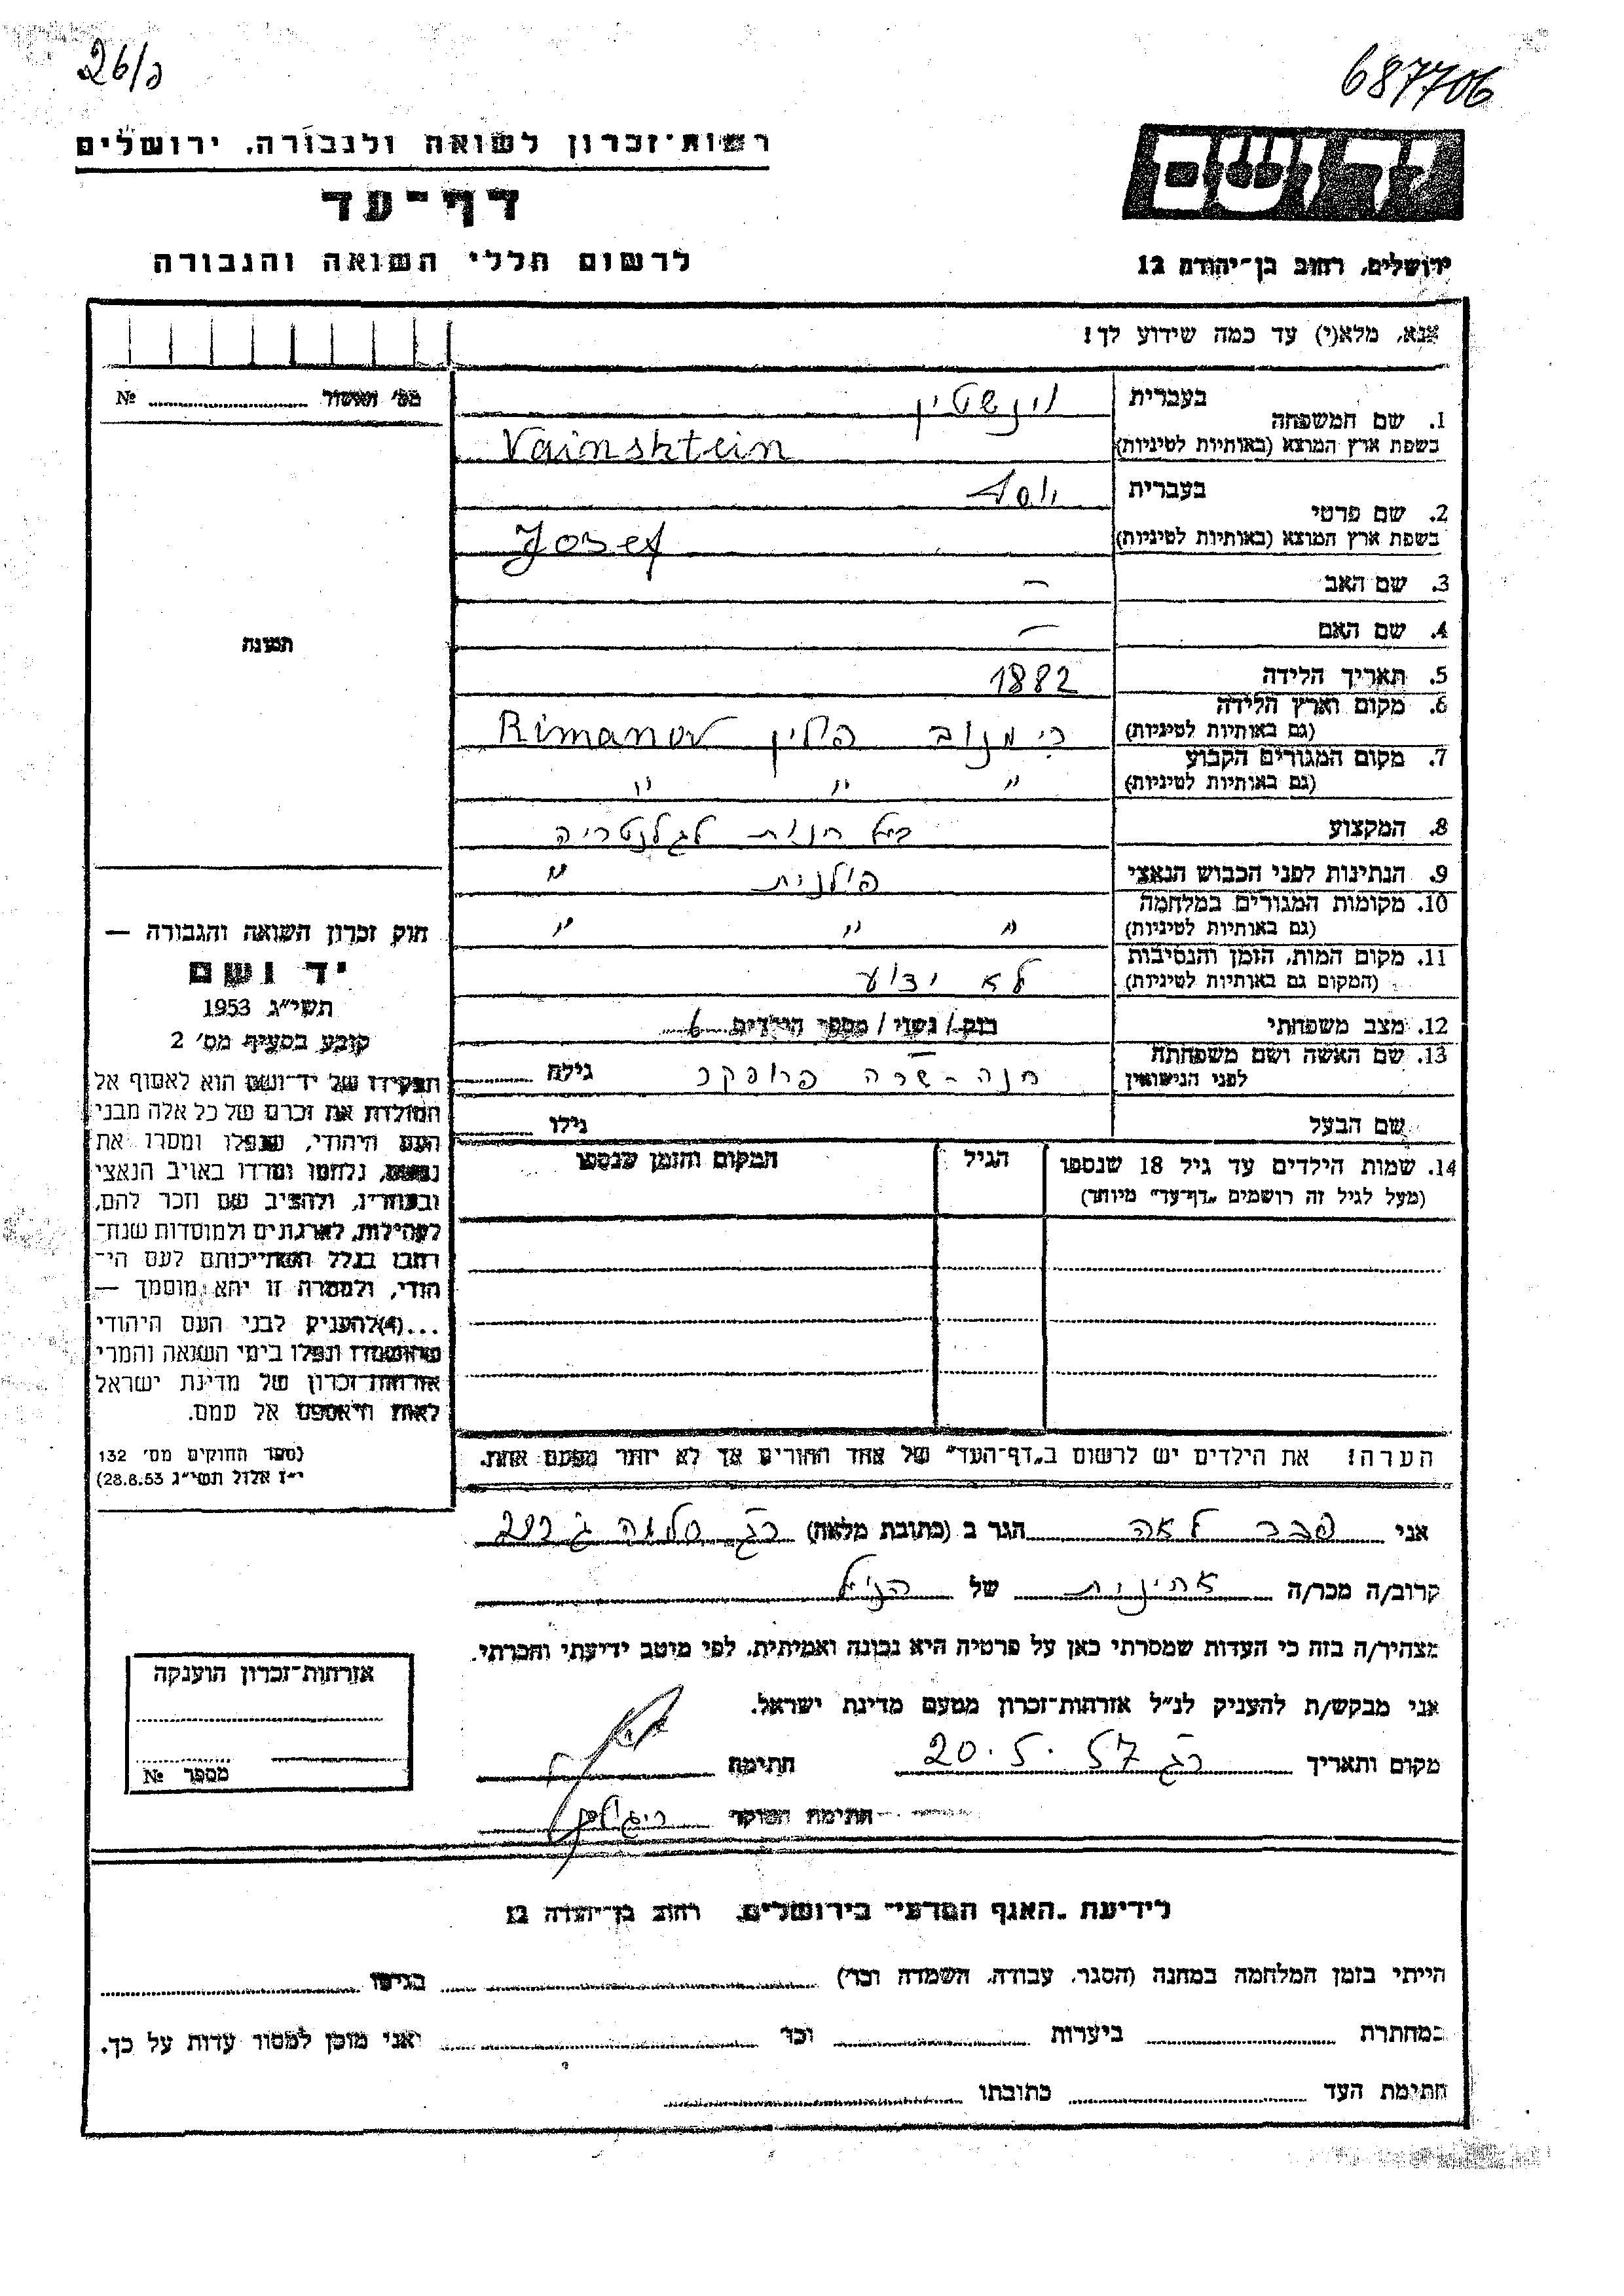 26/ג
687706
רשות־זכרון לשואה ולגבורה, ירושלים
דף־עד
לרשום חללי השואה והגבורה
יד ושם
ירושלים, רחוב בן־יהודה 12
אנא, מלא(י) עד כמה שידוע לך!
מס' תאשור № ........
1. שם המשפחה
בעברית וינשטין
בשפת ארץ המוצא (באותיות לטיניות) Vainshtein
2. שם פרטי
בעברית יוסף
בשפת ארץ המוצא (באותיות לטיניות) Josef
3. שם האב —
4. שם האם —
5. תאריך הלידה 1882
6. מקום וארץ הלידה
(גם באותיות לטיניות) רימנוב פולין Rimanov
7. מקום המגורים הקבוע
(גם באותיות לטיניות) " " "
8. המקצוע בעל חנות לגלנטריה
9. הנתינות לפני הכבוש הנאצי פולנית "
10. מקומות המגורים במלחמה
(גם באותיות לטיניות) " " "
11. מקום המות, הזמן והנסיבות
(המקום גם באותיות לטיניות) לא ידוע
12. מצב משפחתי רווק / נשוי / מספר הילדים 6
13. שם האשה ושם משפחתה
לפני הנישואין חנה - שרה גילה
שם הבעל גילו
14. שמות הילדים עד גיל 18 שנספו
(מעל לגיל זה רושמים „דף־עד" מיוחד)
הגיל
המקום והזמן שנספו
הערה! את הילדים יש לרשום ב„דף־העד" של אחד ההורים אך לא יותר מפעם אחת.
תמונה
חוק זכרון השואה והגבורה —
יד ושם
תשי"ג 1953
קובע בסעיף מס' 2
תפקידו של יד־ושם הוא לאסוף אל
המולדת את זכרם של כל אלה מבני
העם היהודי, שנפלו ומסרו את
נפשם, נלחמו ומרדו באויב הנאצי
ובעוזריו, ולהציב שם וזכר להם,
לקהילות, לארגונים ולמוסדות שנח־
רבו בגלל השתייכותם לעם הי־
הודי, ולמטרה זו יהא מוסמך —
...(4) להעניק לבני העם היהודי
שהושמדו ונפלו בימי השואה והמרי
אזרחות־זכרון של מדינת ישראל
לאות היאספם אל עמם.
(ספר החוקים מס' 132
י"ז אלול תשי"ג 28.8.53)
אני לאה הגר ב (כתובת מלאה) רג
קרוב/ה מכר/ה אחינות של הנ"ל
מצהיר/ה בזה כי העדות שמסרתי כאן על פרטיה היא נכונה ואמיתית, לפי מיטב ידיעתי והכרתי.
אני מבקש/ת להעניק לנ"ל אזרחות־זכרון מטעם מדינת ישראל.
מקום ותאריך רג 20.5.57 חתימה
חתימת הפוקד
אזרחות־זכרון הוענקה
מספר №
לידיעת „האגף המדעי" בירושלים, רחוב בן־יהודה 12
הייתי בזמן המלחמה במחנה (הסגר, עבודה, השמדה וכו') בגיטו
במחתרת ביערות וכו' ואני מוכן למסור עדות על כך.
חתימת העד כתובתו